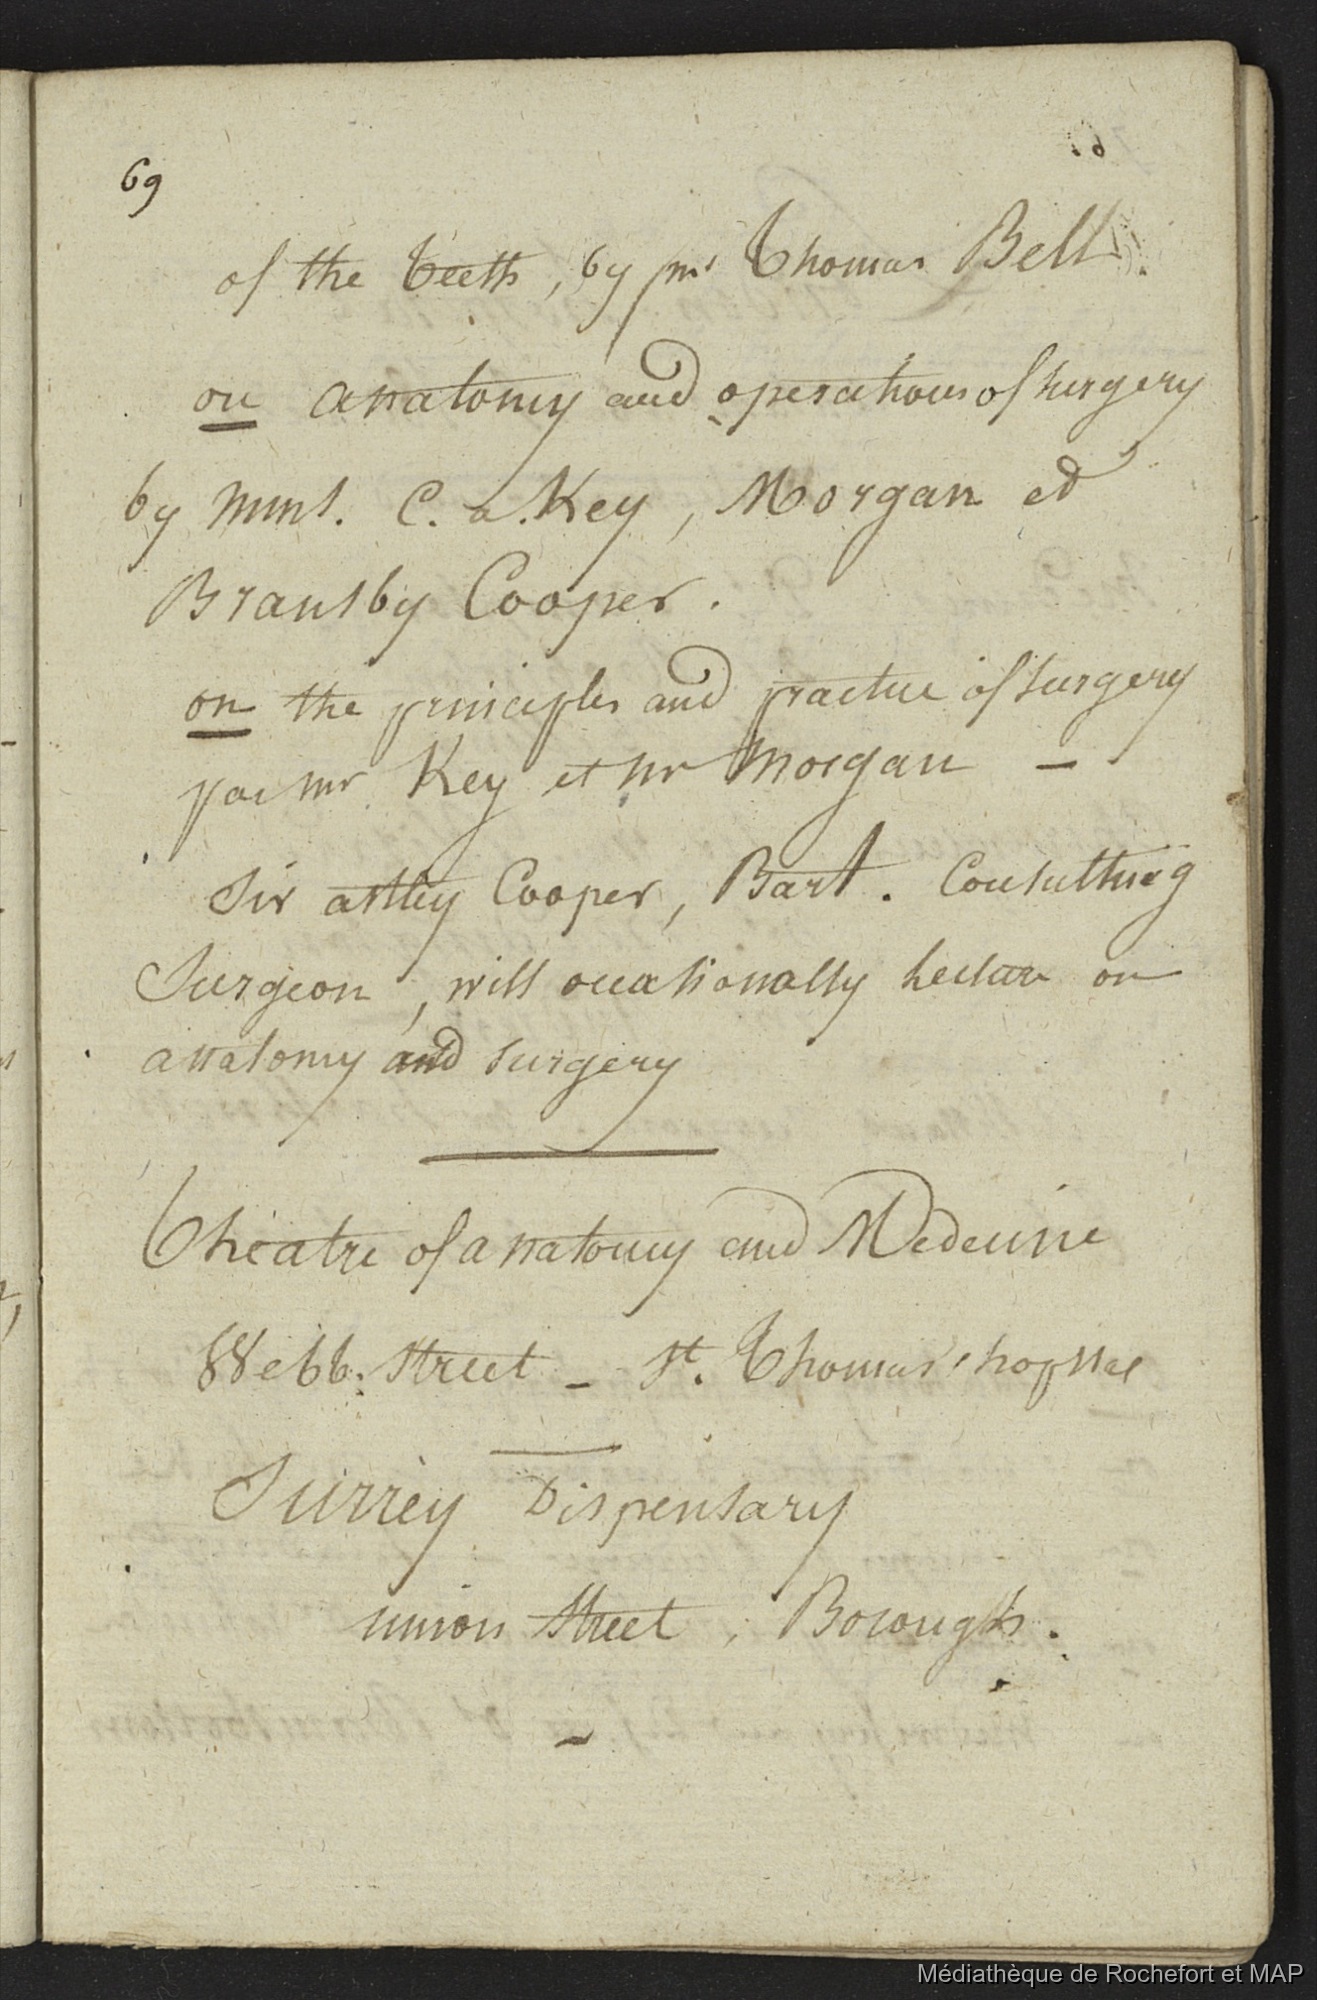 69
of the teeth, by mr Thomas Bell.
on anatomy and operations of surgery
by mms. C. a. Key, Morgan ed
Bransby Cooper.
on the principles and practice of surgery
par mr Key et mr Morgan —
Sir astley Cooper, Bart. Consulting
Surgeon, will occasionally lecture on
anatomy and surgery
Theatre of anatomy and Medecine
Webb. Street _ St. Thomas's
Surrey Dispensary
union Street, Borough.
Médiathèque de Rochefort et MAP